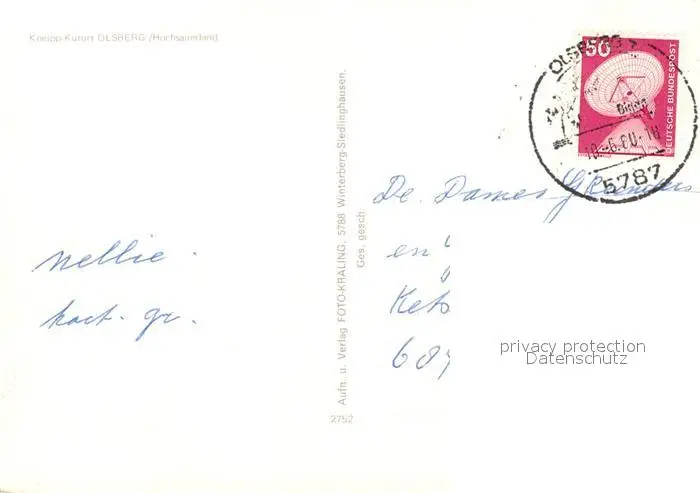 Kneipp-Kurort OLSBERG /Hochsauerland
50
DEUTSCHE BUNDESPOST
OLSBERG
Bigge
10.-6.80.-10
5787
Aufn. u. Verlag FOTO-KRALING, 5788 Winterberg-Siedlinghausen.
Ges. gesch.
2752
Nellie.
hart. gr.
De Dames
en
privacy protection
Datenschutz